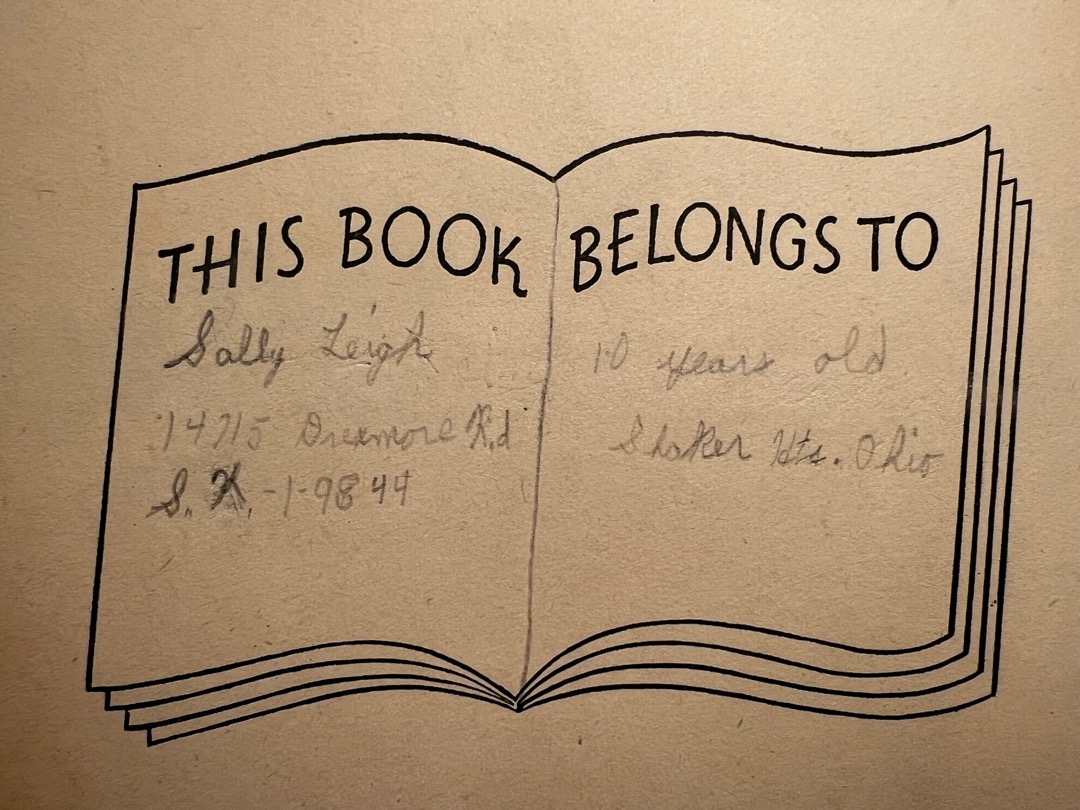 THIS BOOK BELONGS TO
Sally Leigh
14715 Drexmore Rd
S. K. -1-9844
10 years old.
Shaker Hts. Ohio